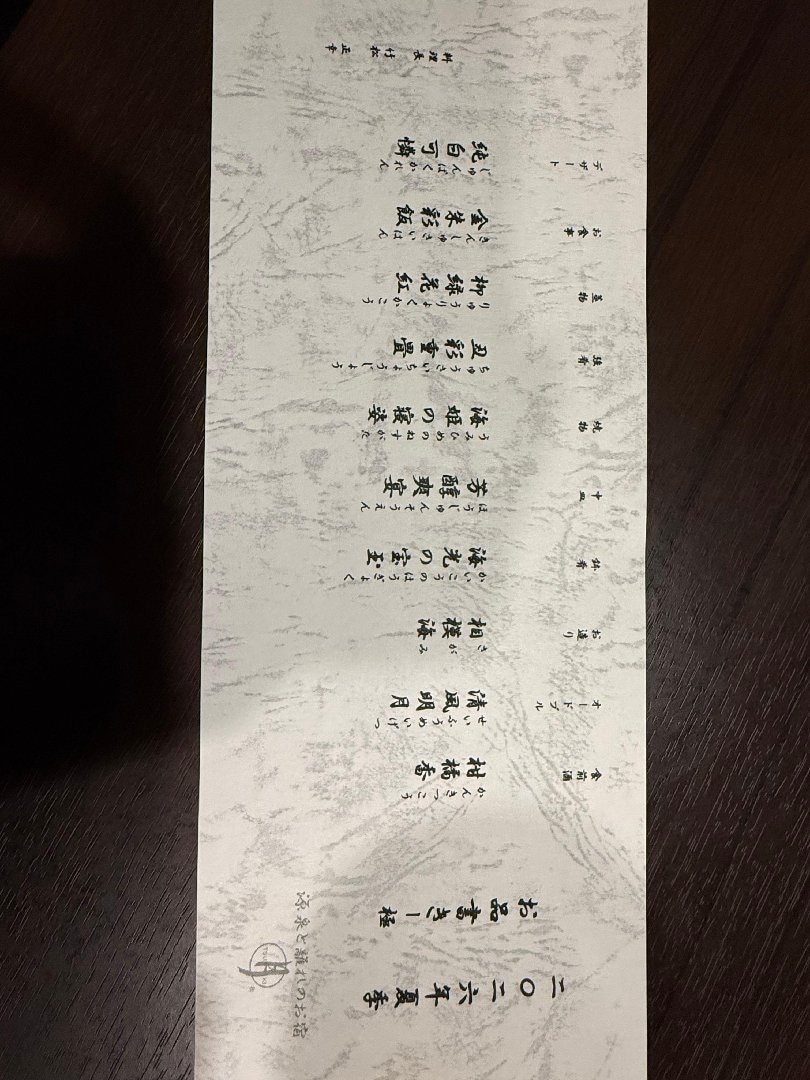 二〇二六年夏季
お品書き－極
源泉と離れのお宿
月
食前酒
柑橘香
かんきつこう
オードブル
清風明月
せいふうめいげつ
お造り
相模海
さがみ
鉢肴
海光の宝玉
かいこうのほうぎょく
中皿
芳醇爽宴
ほうじゅんそうえん
焼物
海姫の寝姿
うみひめのねすがた
強肴
丑彩重畳
ちゅうさいちょうじょう
蒸物
柳緑花紅
りゅうりょくかこう
お食事
金朱彩飯
きんしゅさいはん
デザート
純白可憐
じゅんぱくかれん
料理長 竹松 正幸